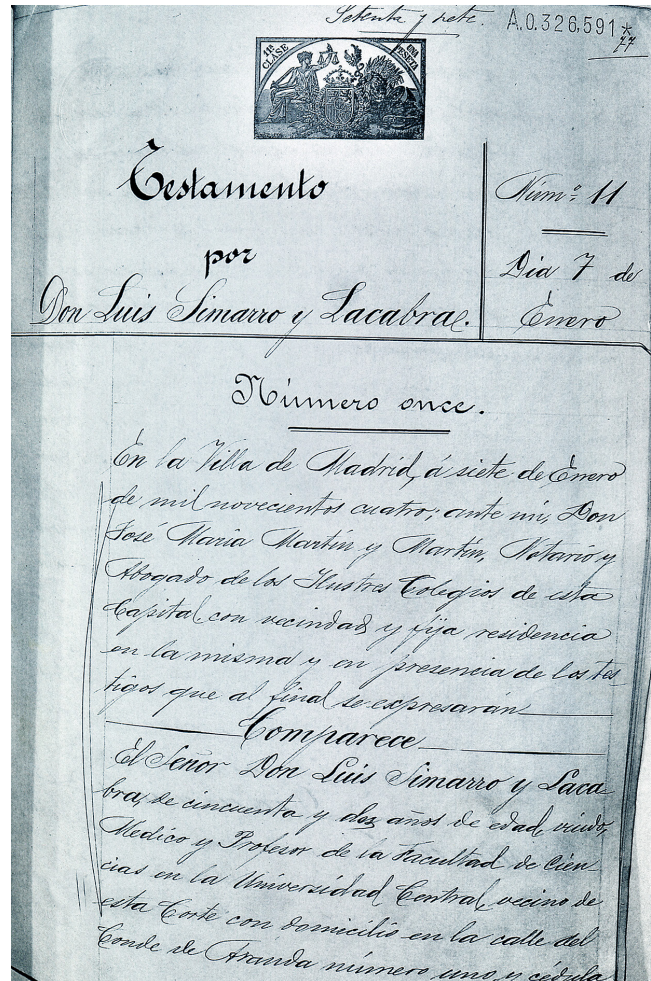 Setenta y siete.
A.0.326,591 *
77
11ª CLASE
UNA PESETA
Testamento
por
Don Luis Simarro y Lacabra.
Númº 11
Dia 7 de
Enero
Número once.
En la Villa de Madrid, á siete de Enero
de mil novecientos cuatro; ante mi, Don
José Maria Martin y Martin, Notario y
Abogado de los Ilustres Colegios de esta
Capital con vecindad y fija residencia
en la misma y en presencia de los tes-
tigos que al final se expresarán
Comparece
El Señor Don Luis Simarro y Laca-
bra, de cincuenta y dos años de edad, viudo,
Medico y Profesor de la Facultad de Cien-
cias en la Universidad Central, vecino de
esta Corte con domicilio en la calle del
Conde de Aranda número uno y cédula